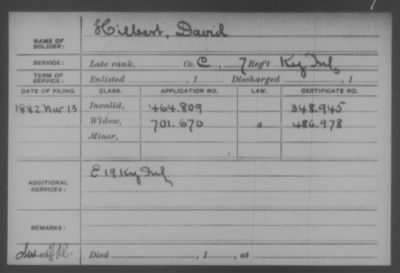 Hilbert, David
NAME OF SOLDIER:
SERVICE: Late rank, Co. C, 7 Reg't Ky Inf,
TERM OF SERVICE: Enlisted , 1 Discharged , 1
DATE OF FILING. CLASS. APPLICATION NO. LAW. CERTIFICATE NO.
1882 Nov 13 Invalid, 464.809 348.945
Widow, 701.670 486.978
Minor,
ADDITIONAL SERVICES: E 19 Ky Inf
REMARKS:
Died , 1 , at